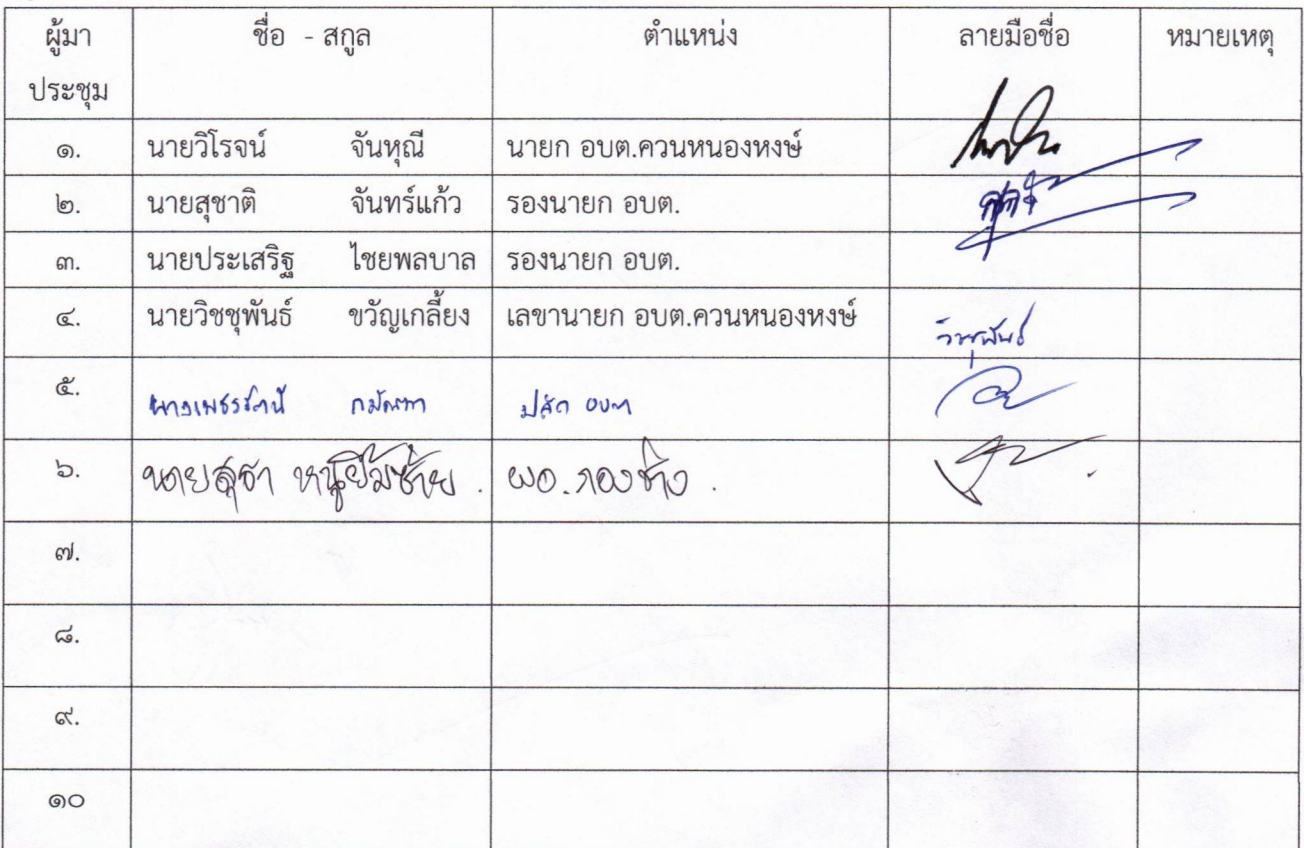 ผู้มา ชื่อ - สกูล ตำแหน่ง ลายมือชื่อ หมายเหตุ
ประชุม
๑. นายวิโรจน์ จันหุณี นายก อบต.ควนหนองหงษ์
๒. นายสุชาติ จันทร์แก้ว รองนายก อบต.
๓. นายประเสริฐ ไชยพลบาล รองนายก อบต.
๔. นายวิชชุพันธ์ ขวัญเกลี้ยง เลขานายก อบต.ควนหนองหงษ์
วิชชุพันธ์
๕. นางเพชรรัตน์ ปลัด อบต
๖. นายสุธา หนูยิ้มซ้าย . ผอ.กองช่าง .
๗.
๘.
๙.
๑๐